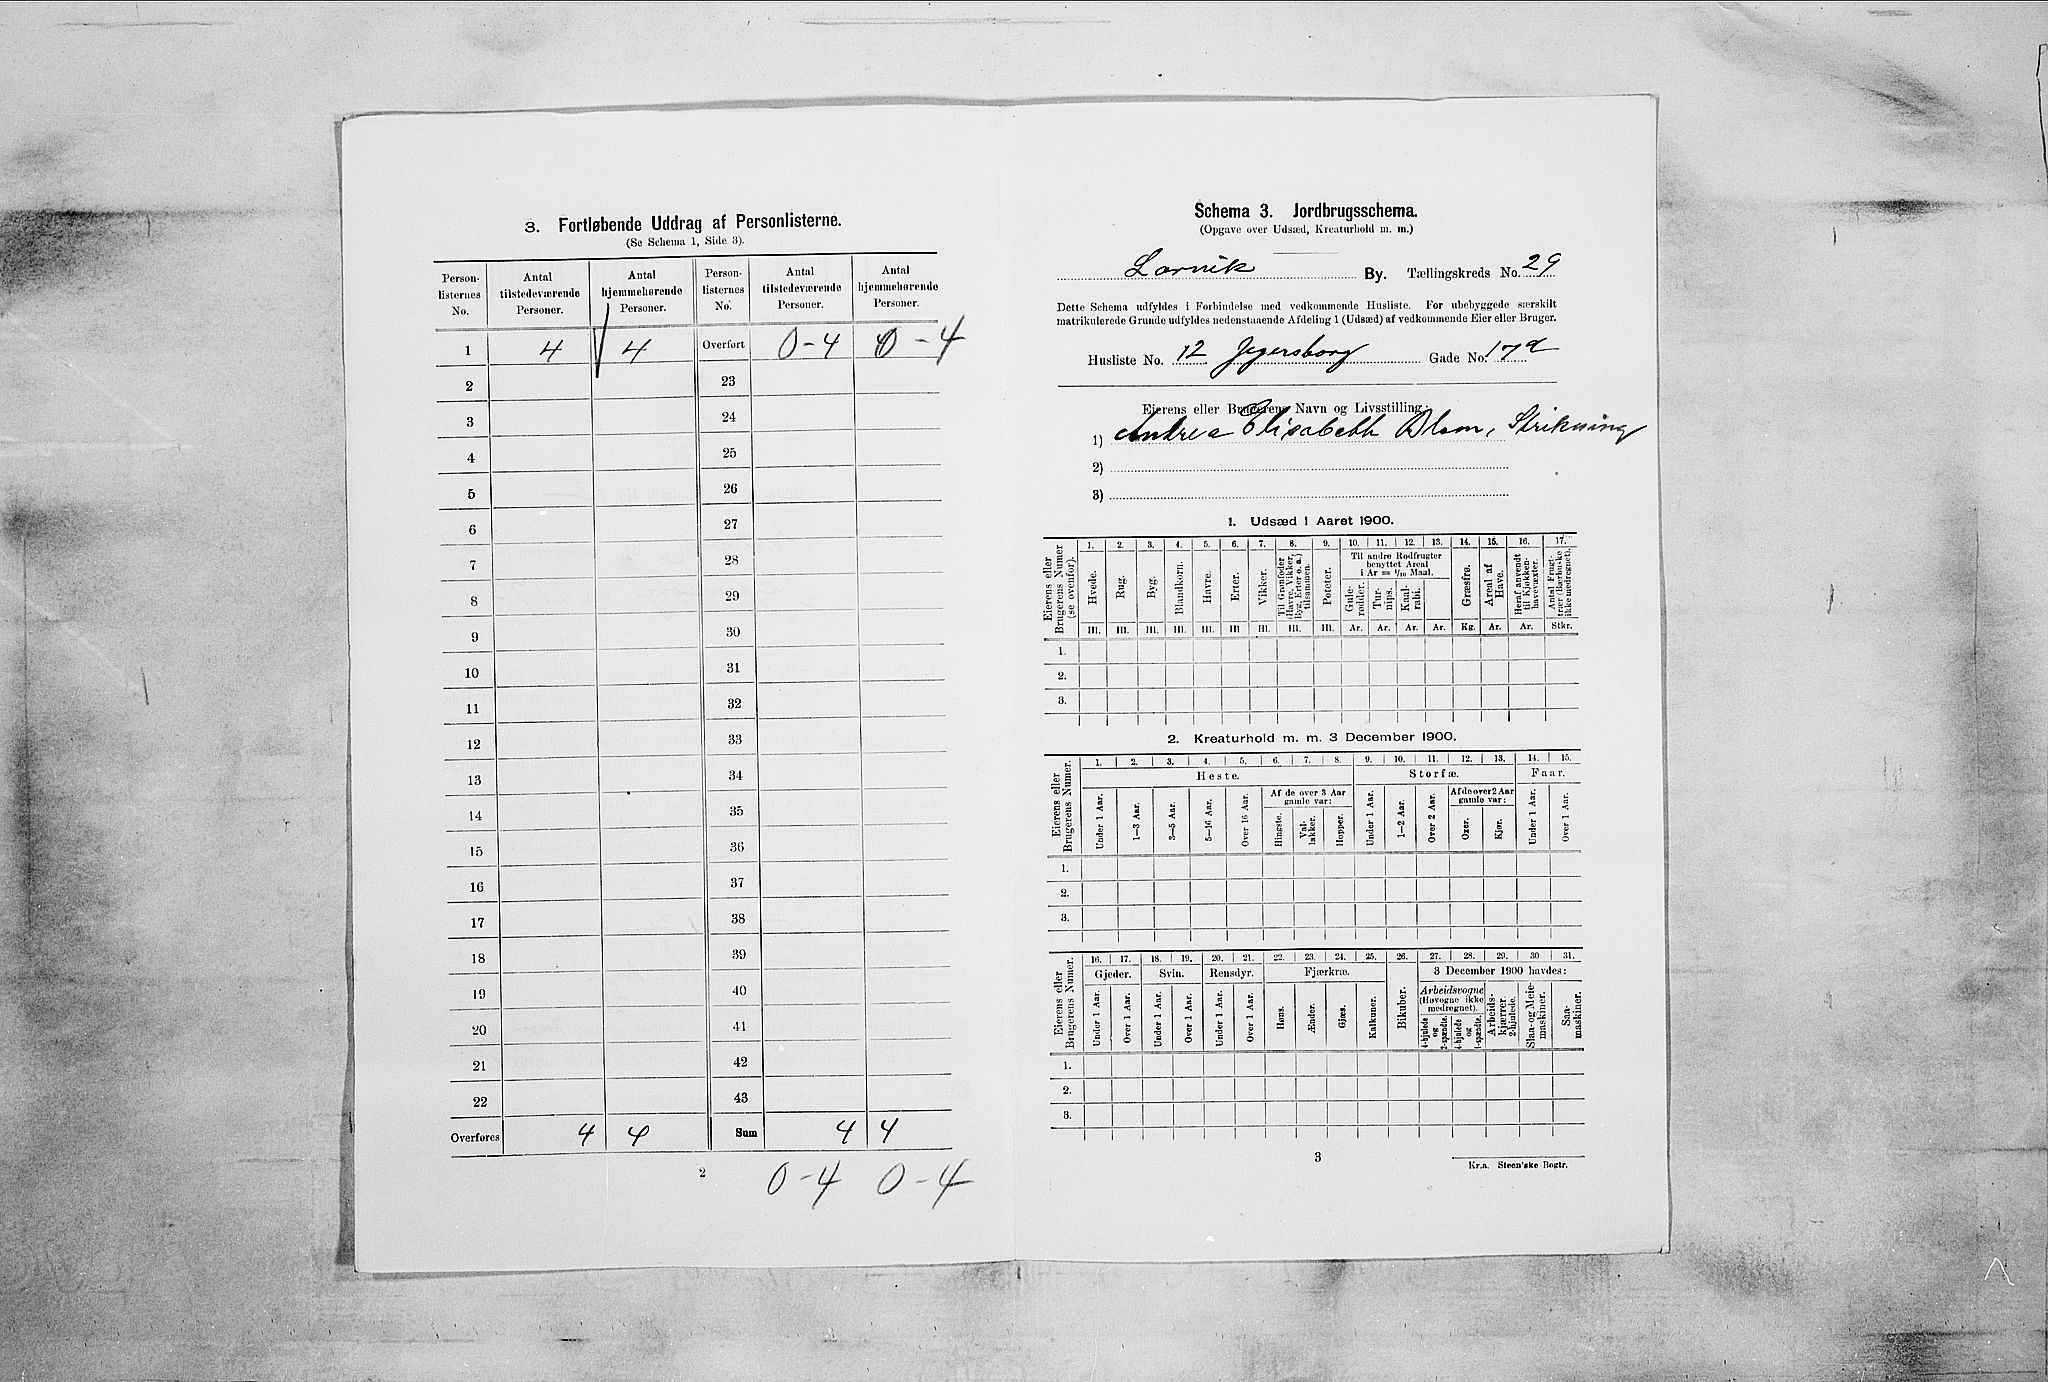 3. Fortløbende Uddrag af Personlisterne.
(Se Schema 1, Side 3).
Person-listernes No. | Antal tilstedeværende Personer. | Antal hjemmehørende Personer. | Person-listernes No. | Antal tilstedeværende Personer. | Antal hjemmehørende Personer.
1 | 4 | 4 | Overført | 0-4 | 0-4
2 | 23
3 | 24
4 | 25
5 | 26
6 | 27
7 | 28
8 | 29
9 | 30
10 | 31
11 | 32
12 | 33
13 | 34
14 | 35
15 | 36
16 | 37
17 | 38
18 | 39
19 | 40
20 | 41
21 | 42
22 | 43
Overføres | 4 | 4 | Sum | 4 | 4
2
0-4 0-4
Schema 3. Jordbrugsschema.
(Opgave over Udsæd, Kreaturhold m. m.)
Larvik By. Tællingskreds No. 29
Dette Schema udfyldes i Forbindelse med vedkommende Husliste. For ubebyggede særskilt
matrikulerede Grunde udfyldes nedenstaaende Afdeling 1 (Udsæd) af vedkommende Eier eller Bruger.
Husliste No. 12 Jegersborg Gade No. 17d
Eierens eller Brugerens Navn og Livsstilling:
1) Andrea Elisabeth Blom, Strikning
2)
3)
1. Udsæd i Aaret 1900.
Eierens eller Brugerens Numer (se ovenfor).
1. 2. 3. 4. 5. 6. 7. 8. 9. 10. 11. 12. 13. 14. 15. 16. 17.
Hvede. Rug. Byg. Blandkorn. Havre. Erter. Vikker. Til Grønfoder (Havre, Vikker, Byg, Erter o. a.) tilsammen. Poteter.
Til andre Rodfrugter benyttet Areal i Ar = 1/10 Maal.
Gule-rødder. Tur-nips. Kaal-rabi. Græsfrø. Areal af Have. Heraf anvendt til Kjøkken-havevæxter. Antal Frugt-trær (Bærbuske ikke medregnet).
Hl. Hl. Hl. Hl. Hl. Hl Hl. Hl. Hl. Ar. Ar. Ar. Ar. Kg. Ar. Ar. Stkr.
1.
2.
3.
2. Kreaturhold m. m. 3 December 1900.
Eierens eller Brugerens Numer.
1. 2. 3. 4. 5. 6. 7. 8. 9. 10. 11. 12. 13. 14. 15.
Heste. Storfæ. Faar.
Under 1 Aar. 1—3 Aar. 3—5 Aar. 5—16 Aar. Over 16 Aar.
Af de over 3 Aar gamle var:
Hingste. Val-lakker. Hopper.
Under 1 Aar. 1—2 Aar. Over 2 Aar.
Af de over 2 Aar gamle var:
Oxer. Kjør.
Under 1 Aar. Over 1 Aar.
1.
2.
3.
Eierens eller Brugerens Numer.
16. 17. 18. 19. 20. 21. 22. 23. 24. 25. 26. 27. 28. 29. 30 31.
Gjeder. Svin. Rensdyr. Fjærkræ. Bikuber. 3 December 1900 havdes:
Under 1 Aar. Over 1 Aar. Under 1 Aar. Over 1 Aar. Under 1 Aar. Over 1 Aar. Høns. Ænder. Gjæs. Kalkuner.
Arbeidsvogne (Høvogne ikke medregnet).
4-hjulede og 2-spændte. 4-hjulede og 1-spændte. Arbeids-kjærrer, 2-hjulede. Slaa- og Meie-maskiner. Saa-maskiner.
1.
2.
3.
3
Kr.a. Steen'ske Bogtr.